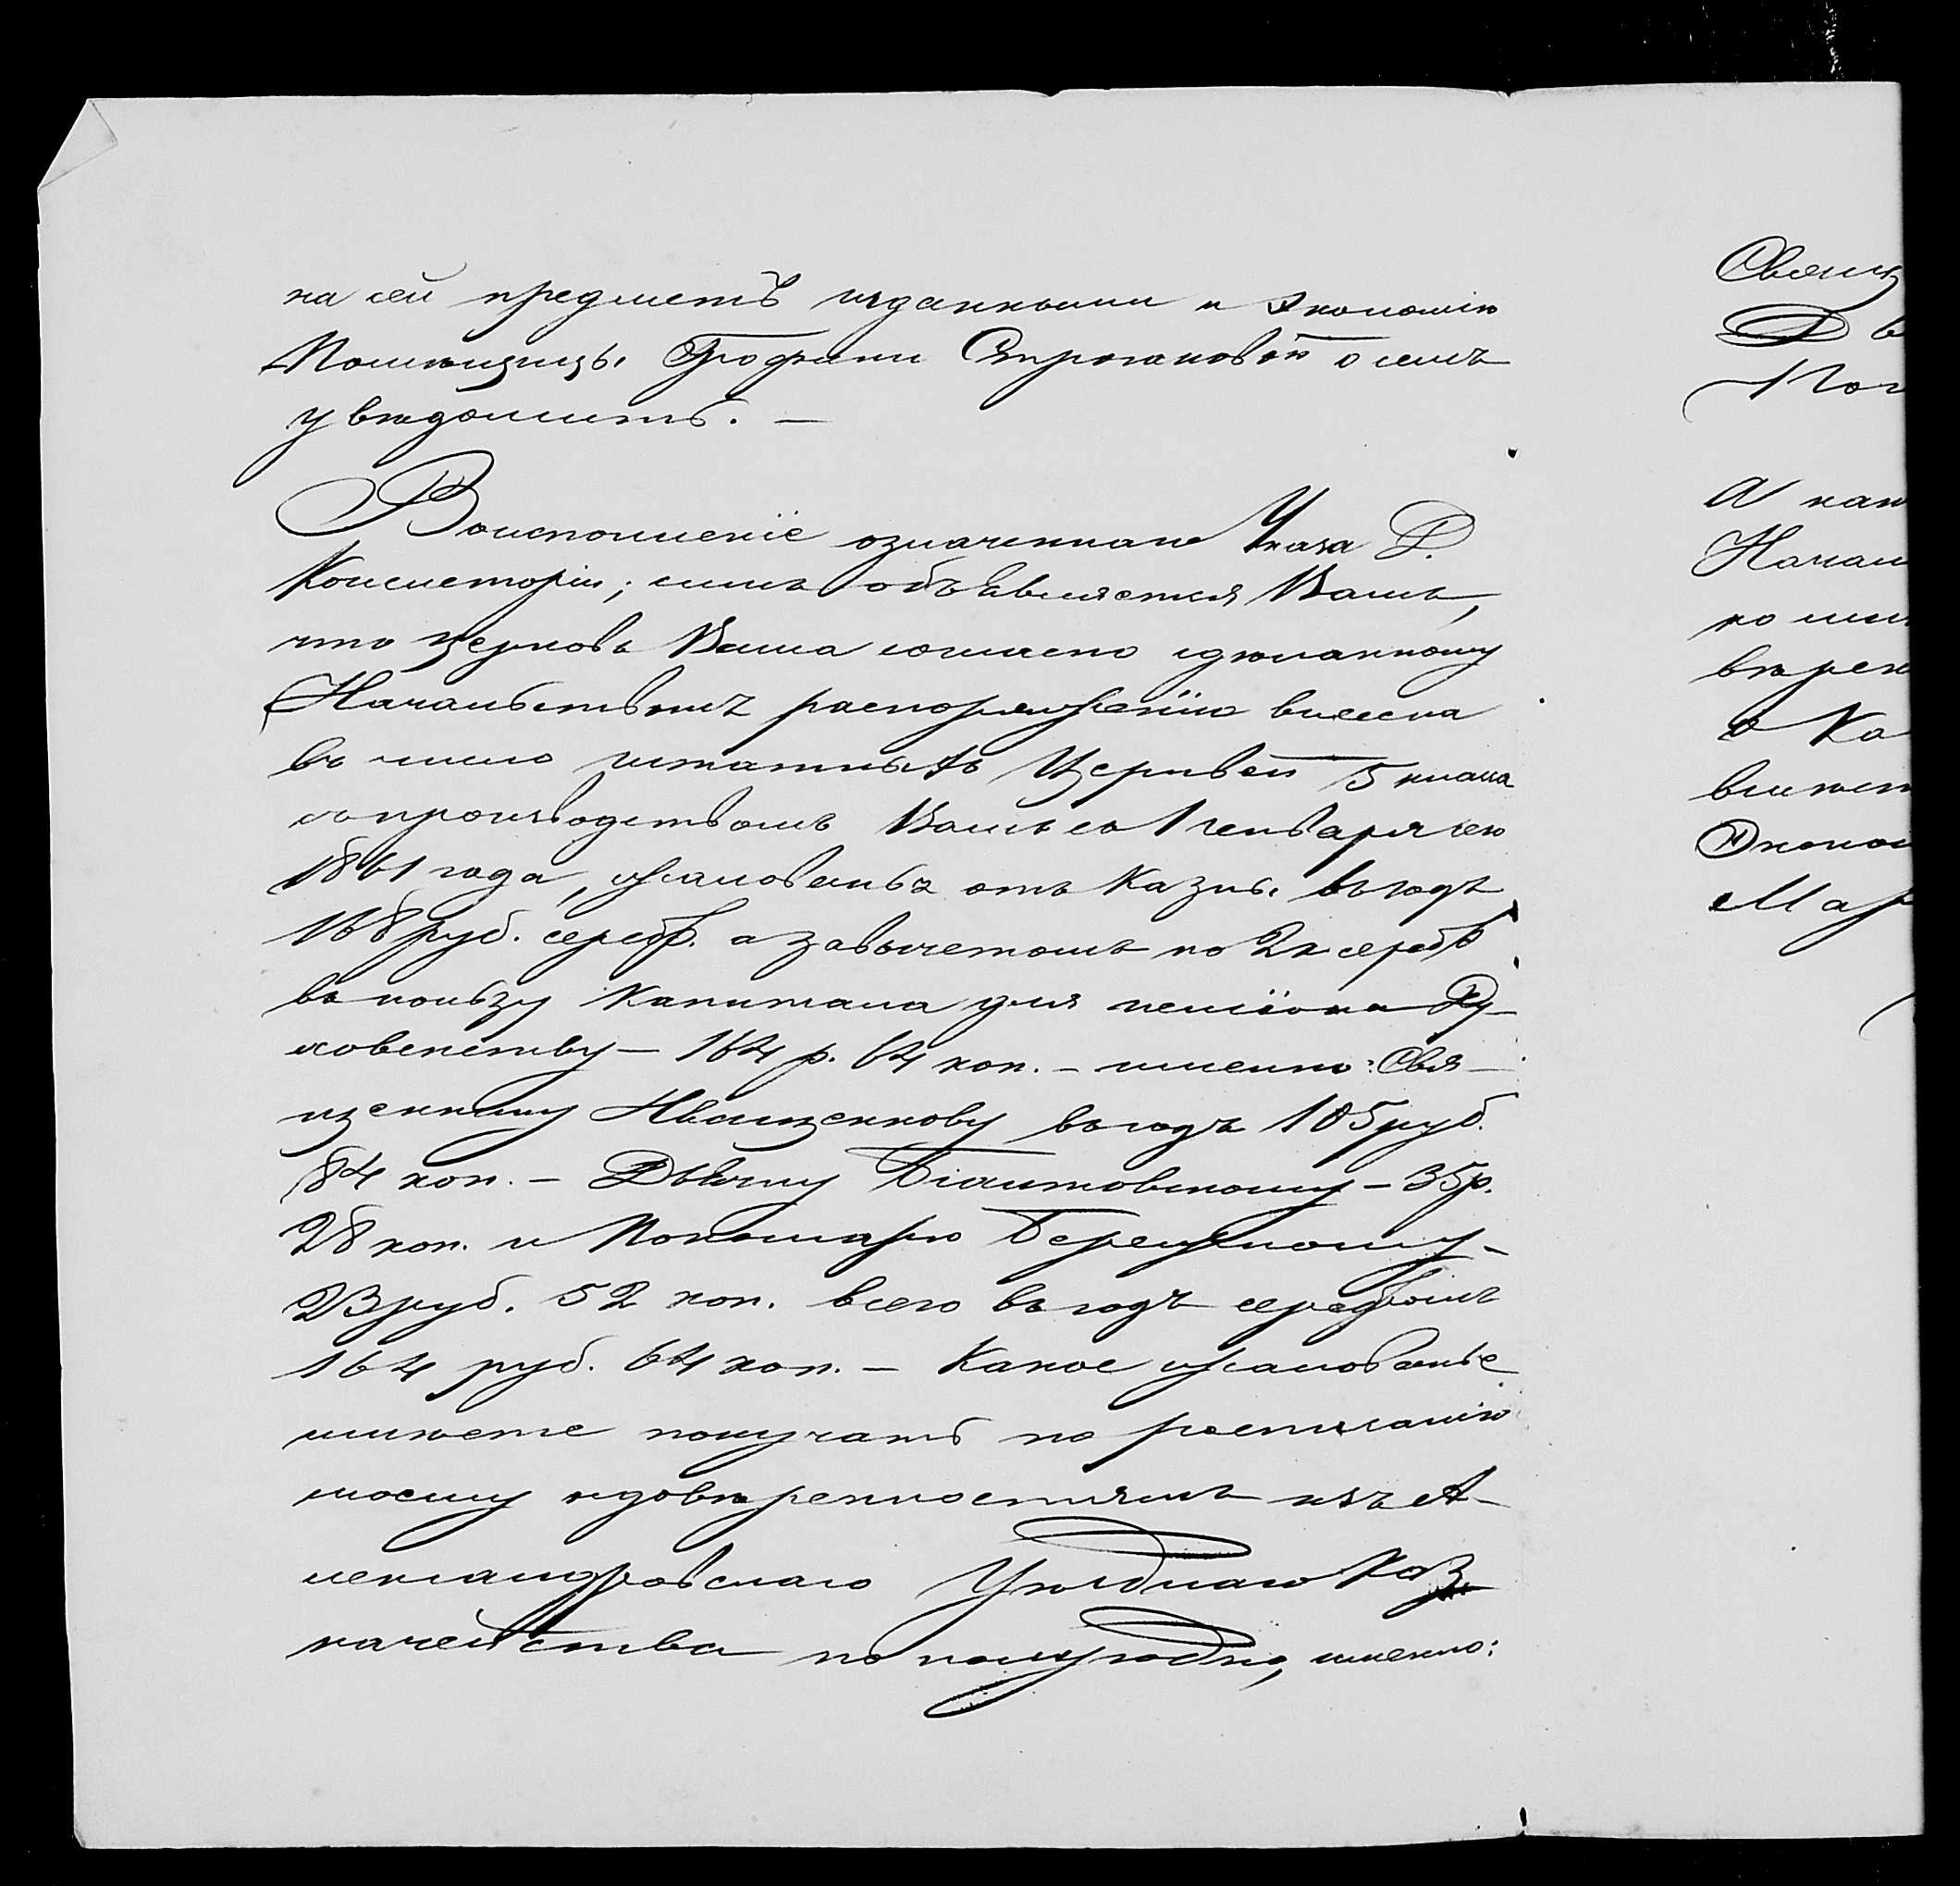 на сей предметъ изданными и Экономію
Помѣщицы Графини Строгановой о семъ
увѣдомить. —
Воисполненіе означеннаго Указа Д.
Консисторіи; симъ объявляется Вамъ,
что церковь Ваша согласно сдѣланному
Начальствомъ распоряженію внесена
въ число штатныхъ Церквей 5 класа
съ производствомъ Вамъ съ 1 генваря сего
1861 года, жалованья отъ Казны въ годъ
168 руб. сереб. а завычетомъ по 2 к серебр
въ пользу Капитала для пенсіона Ду-
ховенству — 164 р. 64 коп. — именно: Свя-
щеннику Иващенкову въ годъ 105 руб.
84 коп. — Дьячку — 35 р.
28 коп. и Пономарю Бережному —
23 руб. 52 коп. всего въ годъ серебромъ
164 руб. 64 коп. — Какое жалованье
имѣете получать по росписанію
моему и довѣренностямъ изъ А-
лександровскаго Уѣзднаго Каз
начейства по полугодно, именно:
Свящ
Д в
Поч
А как
Начал
ко
вѣрен
и Ка
вмѣст
Эконом
Мар